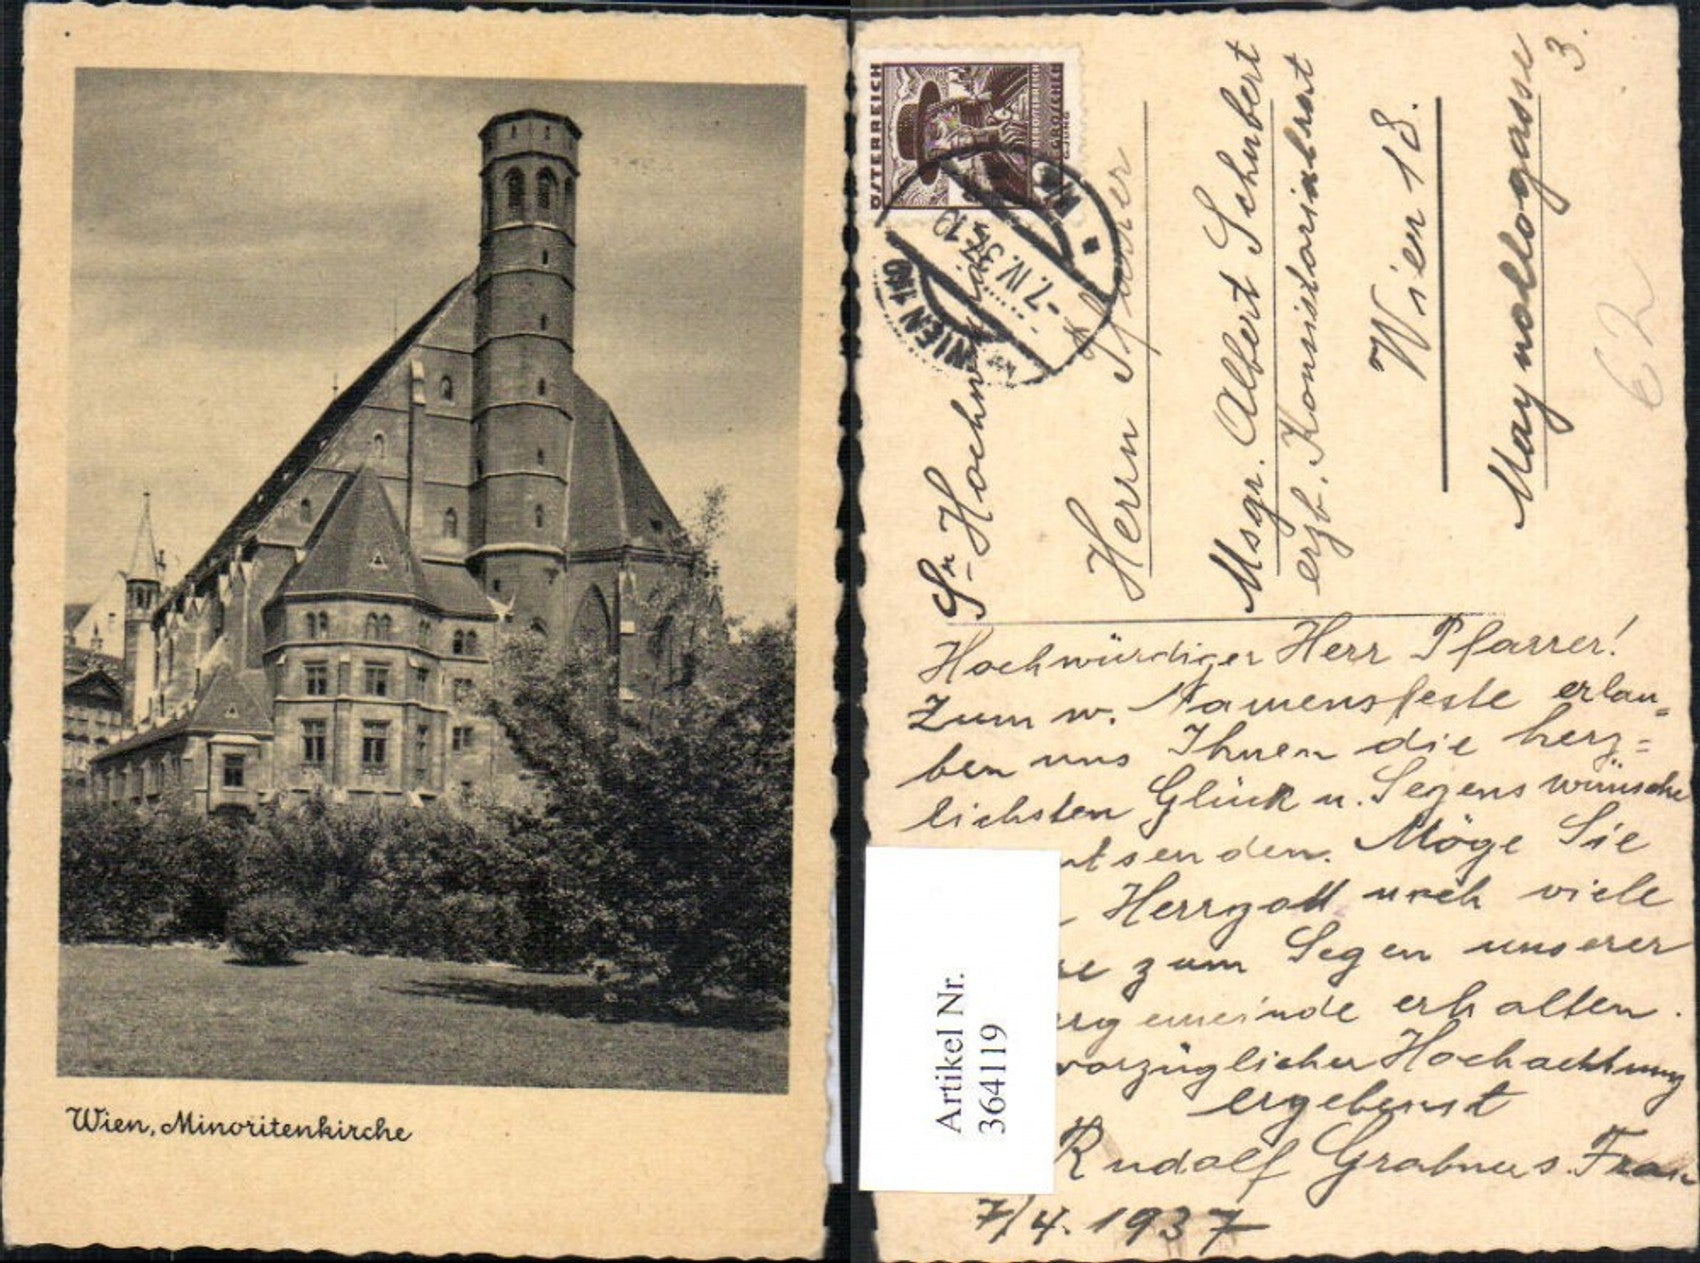 Wien, Minoritenkirche
ÖSTERREICH
WIEN 110
-7.IV.37.10
Sr. Hochw
Herrn Pfarrer
Msgr. Albert Schubert
erzb. Konsistorialrat
Wien 18.
Maynollogasse
3.
62
Hochwürdiger Herr Pfarrer!
Zum w. Namensfeste erlau=
ben uns Ihnen die herz=
lichsten Glück u. Segenswünsche
tsenden. Möge Sie
Herrgott noch viele
re zum Segen unserer
rgemeinde erhalten.
vorzüglicher Hochachtung
ergebenst
Rudolf Grabner s. Frau
7/4. 1937
Artikel Nr.
364119